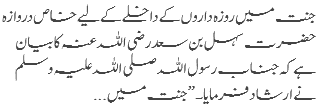 جنت میں روزہ داروں کے داخلے کے لیے خاص دروازہ
حضرت سہل بن سعد رضی اللہ عنہ کا بیان
ہے کہ جناب رسول اللہ صلی اللہ علیہ وسلم
نے ارشاد فرمایا۔ ”جنت میں...